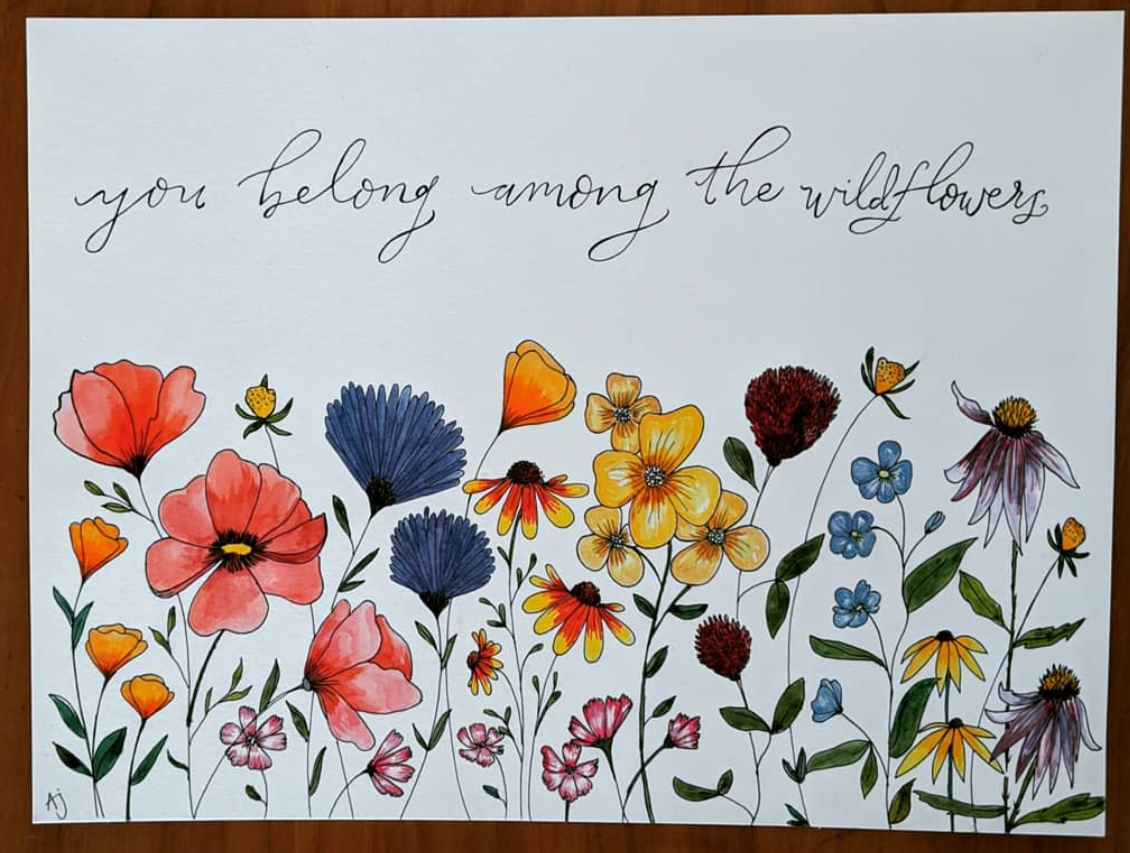 you belong among the wildflowers
AJ